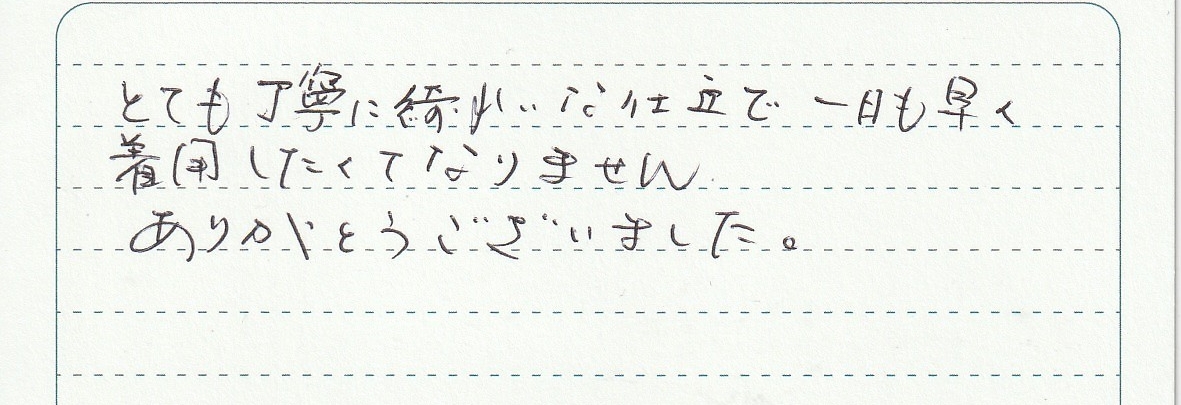 とても丁寧に綺れいな仕立で一日も早く
着用したくてなりません
ありがとうございました。